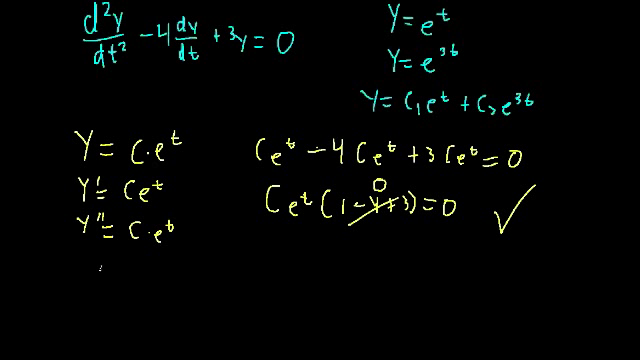 d²y/dt² - 4 dy/dt + 3y = 0
y = e^t
y = e^3t
y = c₁e^t + c₂e^3t
y = C·e^t
Ce^t - 4Ce^t + 3Ce^t = 0
y' = Ce^t
0
Ce^t (1 - 4 + 3) = 0 ✓
y'' = C·e^t